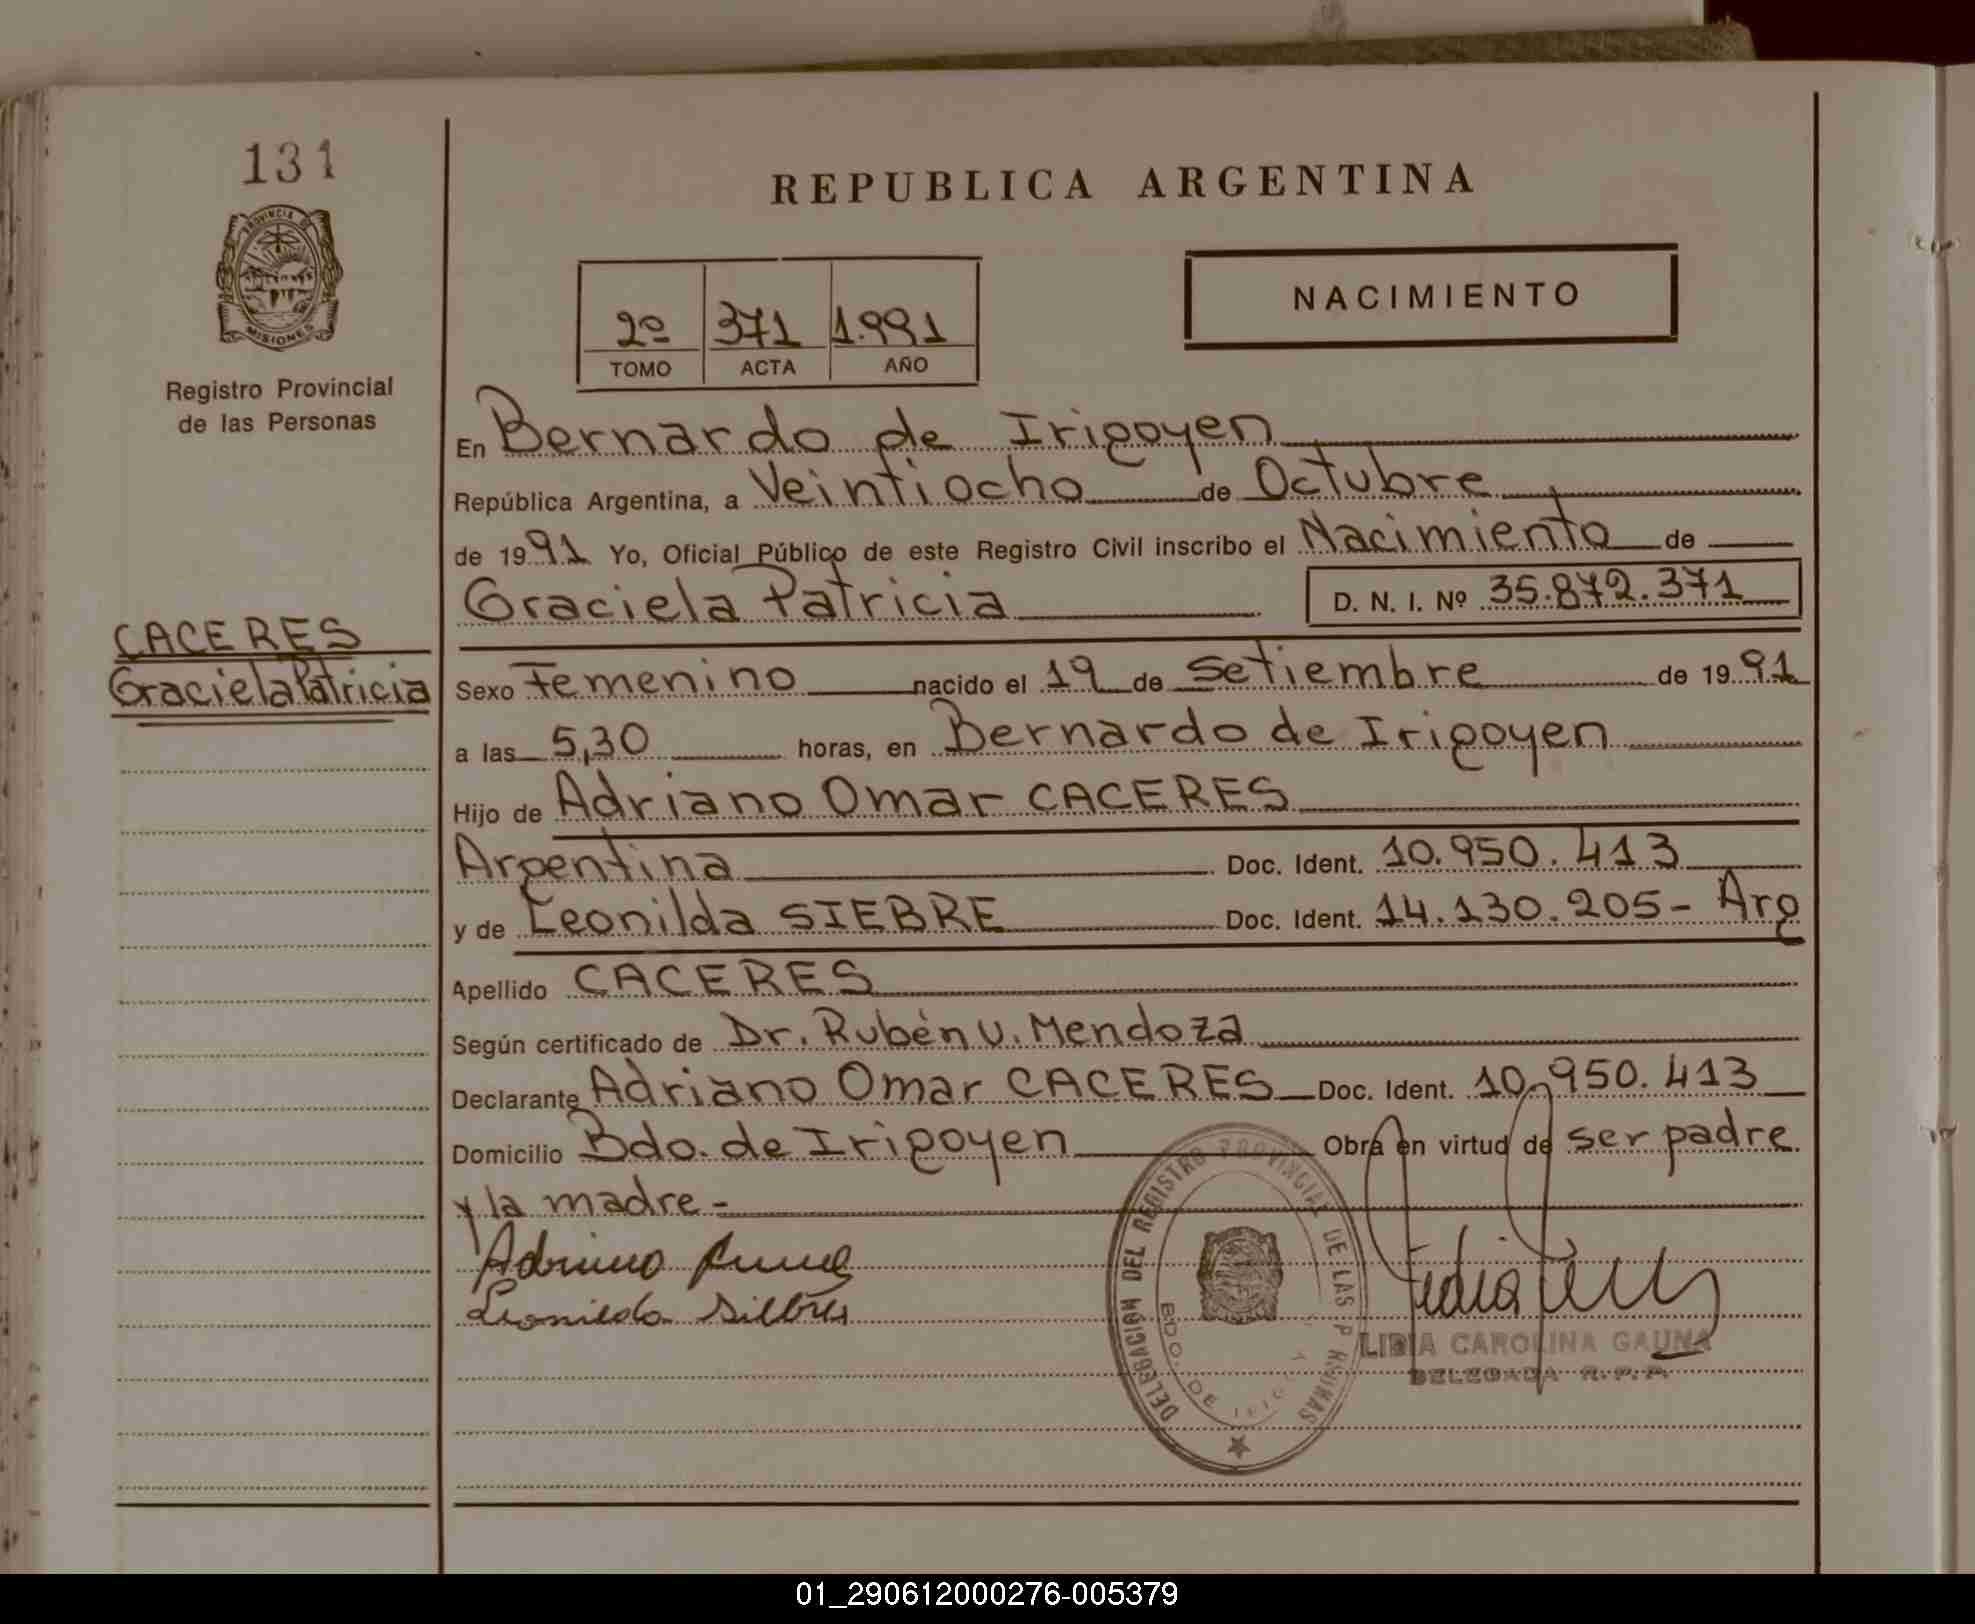 131
REPUBLICA ARGENTINA
PROVINCIA DE
MISIONES
Registro Provincial
de las Personas
2º 371 1.991
TOMO ACTA AÑO
NACIMIENTO
En Bernardo de Irigoyen
República Argentina, a Veintiocho de Octubre
de 1991 Yo, Oficial Público de este Registro Civil inscribo el Nacimiento de
Graciela Patricia D. N. I. Nº 35.872.371
CACERES
Graciela Patricia
Sexo Femenino nacido el 19 de Setiembre de 1991
a las 5,30 horas, en Bernardo de Irigoyen
Hijo de Adriano Omar CACERES
Argentina Doc. Ident. 10.950.413
y de Leonilda SIEBRE Doc. Ident. 14.130.205- Arg
Apellido CACERES
Según certificado de Dr. Rubén U. Mendoza
Declarante Adriano Omar CACERES Doc. Ident. 10.950.413
Domicilio Bdo. de Irigoyen Obra en virtud de ser padre
y la madre-
DELEGACION DEL REGISTRO PROVINCIAL DE LAS PERSONAS
BDO. DE
LIDIA CAROLINA GAUNA
DELEGADA R.P.P.
01_290612000276-005379